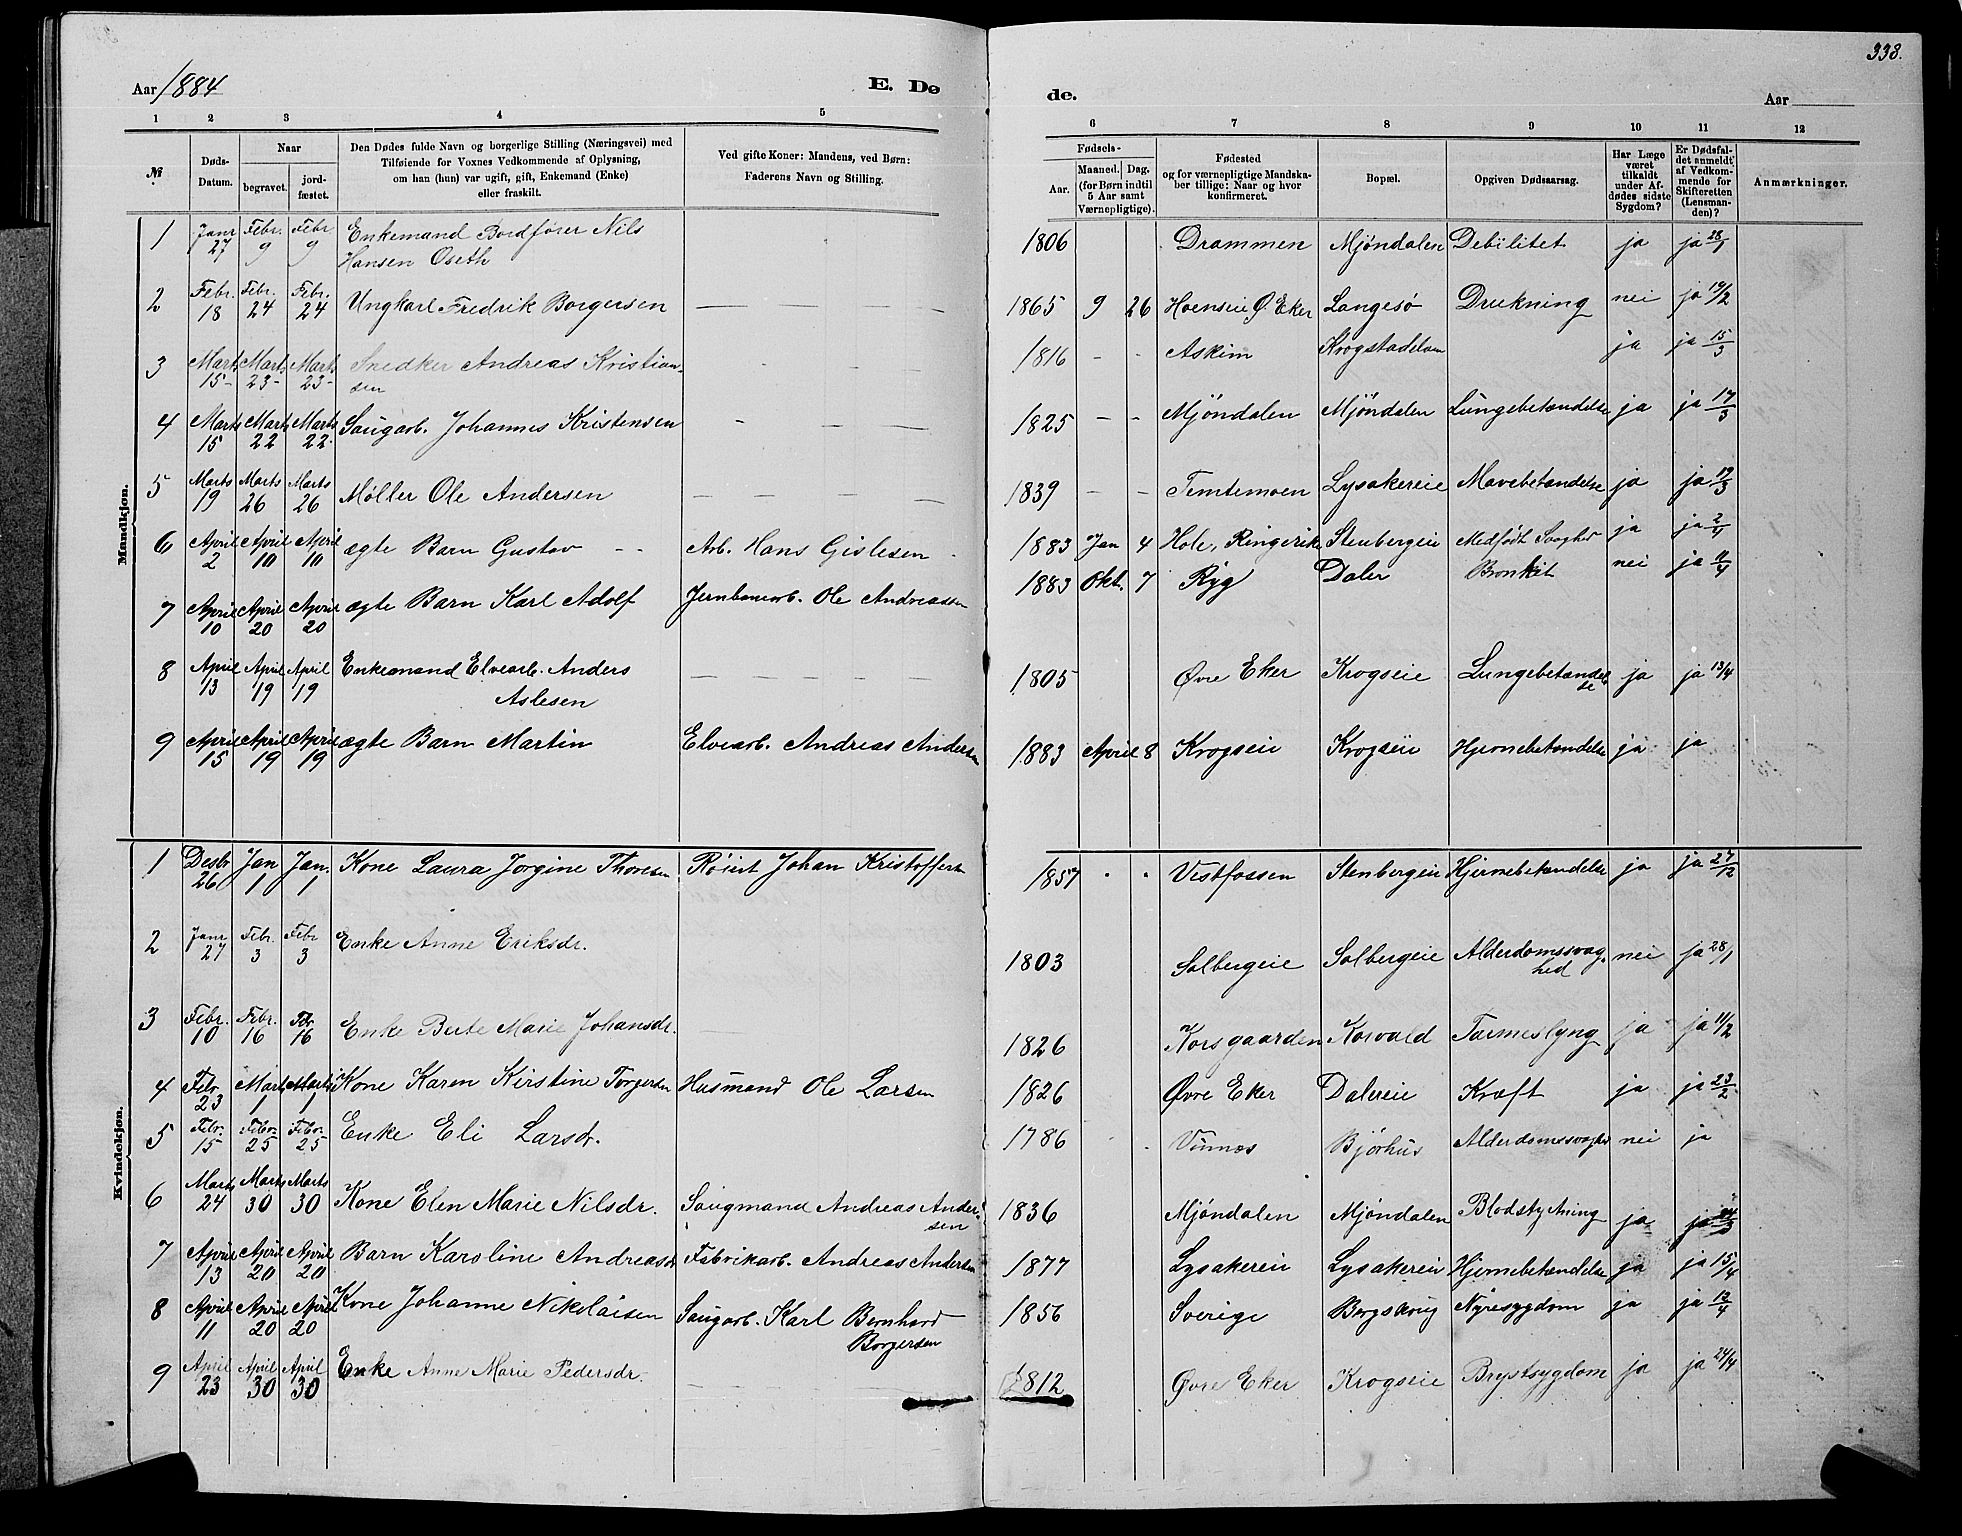 338.
Aar 1884
E. Dø
de.
Aar
1 2 3 4 5 6 7 8 9 10 11 12
№
Døds-Datum.
Naar
begravet.
jord-fæstet.
Den Dødes fulde Navn og borgerlige Stilling (Næringsvei) med
Tilføiende for Voxnes Vedkommende af Oplysning,
om han (hun) var ugift, gift, Enkemand (Enke)
eller fraskilt.
Ved gifte Koner: Mandens, ved Børn:
Faderens Navn og Stilling.
Fødsels-
Aar.
Maaned. Dag.
(for Børn indtil
5 Aar samt
Værnepligtige).
Fødested
og for værnepligtige Mandska-
ber tillige: Naar og hvor
konfirmeret.
Bopæl.
Opgiven Dødsaarsag.
Har Læge
været
tilkaldt
under Af-
dødes sidste
Sygdom?
Er Dødsfal-
det anmeldt
af Vedkom-
mende for
Skifteretten
(Lensman-
den)?
Anmærkninger.
Mandkjøn.
1 Janr 27 Febr. 9 Febr 9 Enkemand Bordfører Nils Hansen Oseth 1806 Drammen Mjöndalen Debilitet ja ja 28/1
2 Febr. 18 Febr. 24 Febr. 24 Ungkarl Fredrik Borgersen — — — — 1865 9 26 Hoenseie, Ø. Eker Langesø Drukning nei ja 19/2
3 Marts 15 Marts 23 Marts 23 Snedker Andreas Kristian-
sen 1816 - - Askim Krogstadelven ja ja 15/3
4 Marts 15 Marts 22 Marts 22 Saugarb. Johannes Kristensen - — — — 1825 — - Mjöndalen Mjöndalen Lungebetændelse ja ja 17/3
5 Marts 19 Marts 26 Marts 26 Møller Ole Andersen — — — — — 1839 — - Temtemoen Lysakereie Mavebetændelse ja ja 19/3
6 April 2 April 10 April 10 ægte Barn Gustav - - Arb. Hans Gislesen 1883 Jan 4 Hole, Ringerike Stenbergeie Medfødt Svaghed ja ja 2/4
7 April 10 April 20 April 20 ægte Barn Karl Adolf Jernbanearb. Ole Andreassen 1883 Okt. 7 Ryg Daler Bronkit nei ja 11/4
8 April 13 April 19 April 19 Enkemand Elvearb. Anders
Aslesen — — — — — — 1805 Øvre Eker Krogseie Lungebetændel-
se ja ja 13/4
9 April 15 April 19 April 19 ægte Barn Martin Elvearb. Andreas Andersen 1883 April 8 Krogseie Krogseie Hjernebetændelse ja ja
Kvindekjøn.
1 Desbr 26 Jan 1 Jan. 1 Kone Laura Jorgine Thoresen Røiert Johan Kristoffersen 1857 . . Vestfossen Stenbergeie Hjernebetændelse ja ja 27/12
2 Janr 27 Febr. 3 Febr 3 Enke Anne Eriksdr. 1803 Solbergeie Solbergeie Alderdomssvag-
hed nei ja 28/1
3 Febr. 10 Febr. 16 Febr 16 Enke Berte Marie Johansdr. 1826 Korsgaarden Korvald Tarmeslyng ja ja 11/2
4 Febr 23 Marts 1 Marts 1 Kone Karen Kirstine Torgersen Husmand Ole Larsen 1826 Øvre Eker Dalereie Kræft ja ja 23/2
5 Febr. 15 Febr. 25 Febr. 25 Enke Eli Larsdr. 1786 Vinnes Bjørhus Alderdomssvaghed nei ja
6 Marts 24 Marts 30 Marts 30 Kone Elen Marie Nilsdr. Saugmand Andreas Ander-
sen 1836 Mjöndalen Mjöndalen Blodstyrtning ja ja
7 April 13 April 20 April 20 Barn Karoline Andreasdr Fabrikarb. Andreas Andersen 1877 Lysakereie Lysakereie Hjernebetændelse ja ja 15/4
8 April 11 April 20 April 20 Kone Johanne Nikolaisen Saugarb. Karl Bernhard
Borgersen 1856 Sverige Bergskrug Nyresygdom ja ja 12/4
9 April 23 April 30 April 30 Enke Anne Marie Pedersdr. — — — — 1812 Øvre Eker Krogseie Brystsygdom ja ja 24/4